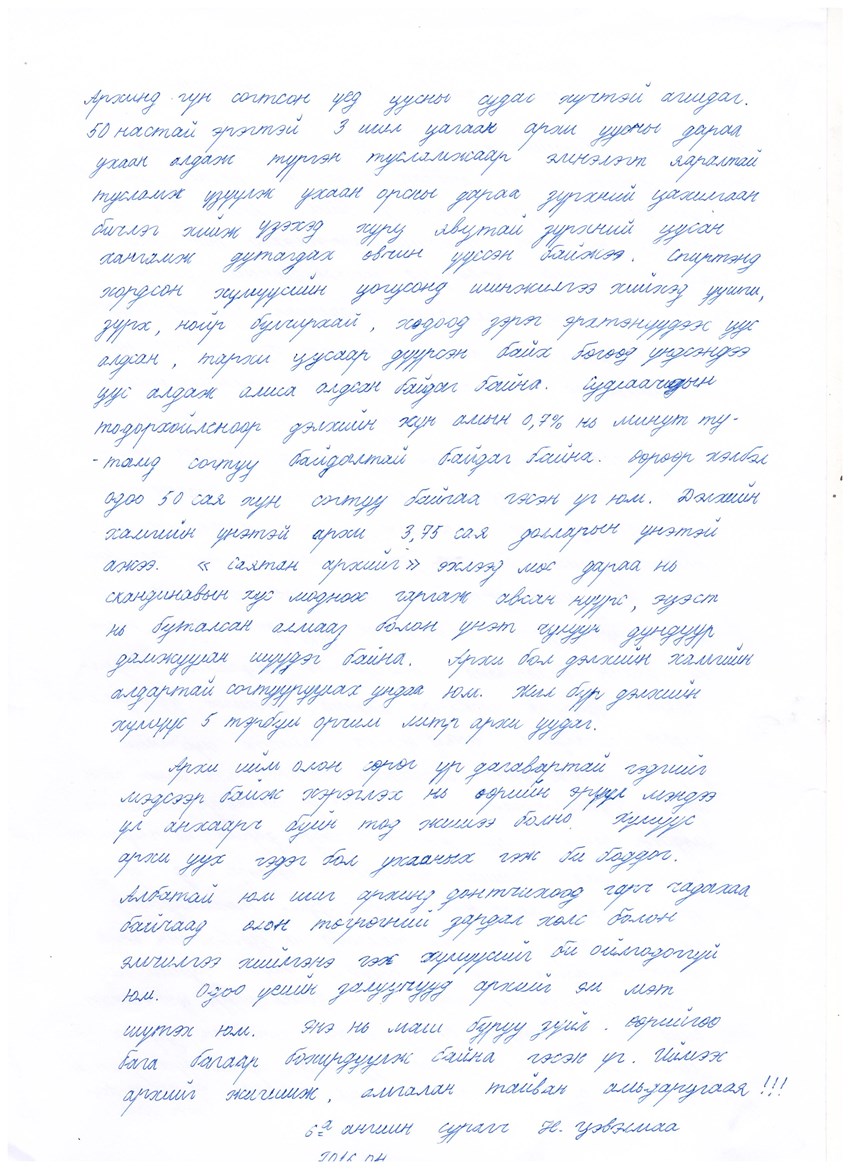 Архинд гүн согтсон үед цусны судас хүчтэй агшдаг.
50 настай эрэгтэй 3 шил цагаан архи уусны дараа
ухаан алдаж түргэн тусламжаар эмнэлэгт яаралтай
тусламж үзүүлж ухаан орсны дараа зүрхний цахилгаан
бичлэг хийж үзэхэд хурц явцтай зүрхний цусан
хангамж дутагдах өвчин үүссэн байжээ. Спиртэнд
хордсон хүмүүсийн цогцсонд шинжилгээ хийхэд уушги,
зүрх, нойр булчирхай, ходоод зэрэг эрхтэнүүдээс цус
алдсан, тархи цусаар дүүрсэн байх бөгөөд үндсэндээ
цус алдаж амиа алдсан байдаг байна. Судлаачдын
тодорхойлсноор дэлхийн хүн амын 0,7% нь минут ту-
-тамд согтуу байдалтай байдаг байна. Өөрөөр хэлбэл
одоо 50 сая хүн согтуу байгаа гэсэн үг юм. Дэлхийн
хамгийн үнэтэй архи 3,75 сая долларын үнэтэй
ажээ. «Саятан архийг» эхлээд мөс дараа нь
скандинавын хус модноос гаргаж авсан нүүрс, эцэст
нь буталсан алмааз болон үнэт чулууч дундуур
дамжуулан шүүдэг байна. Архи бол дэлхийн хамгийн
алдартай согтууруулах ундаа юм. Жил бүр дэлхийн
хүмүүс 5 тэрбум орчим литр архи уудаг.
Архи ийм олон сөрөг үр дагавартай гэдгийг
мэдсээр байж хэрэглэх нь өөрийн эрүүл мэндээ
үл анхаарч буйн тод жишээ болно. Хүмүүс
архи уух гэдэг бол ухааных гэж би боддог.
Албатай юм шиг архинд донтчихоод гарч чадахаа
байчаад олон төгрөгний зардал хөлс болон
эмчилгээ хийлгэнэ гэж хүмүүсийг би ойлгодоггүй
юм. Одоо үеийн залуучууд архийг эм мэт
шүтэх юм. Энэ нь маш буруу зүйл. Өөрийгөө
бага багаар бохирдуулж байна гэсэн үг. Иймээс
архийг жигшиж, амгалан тайван амьдарцгаая!!!
6а ангийн сурагч Н. Цэвэлмаа
2016.04